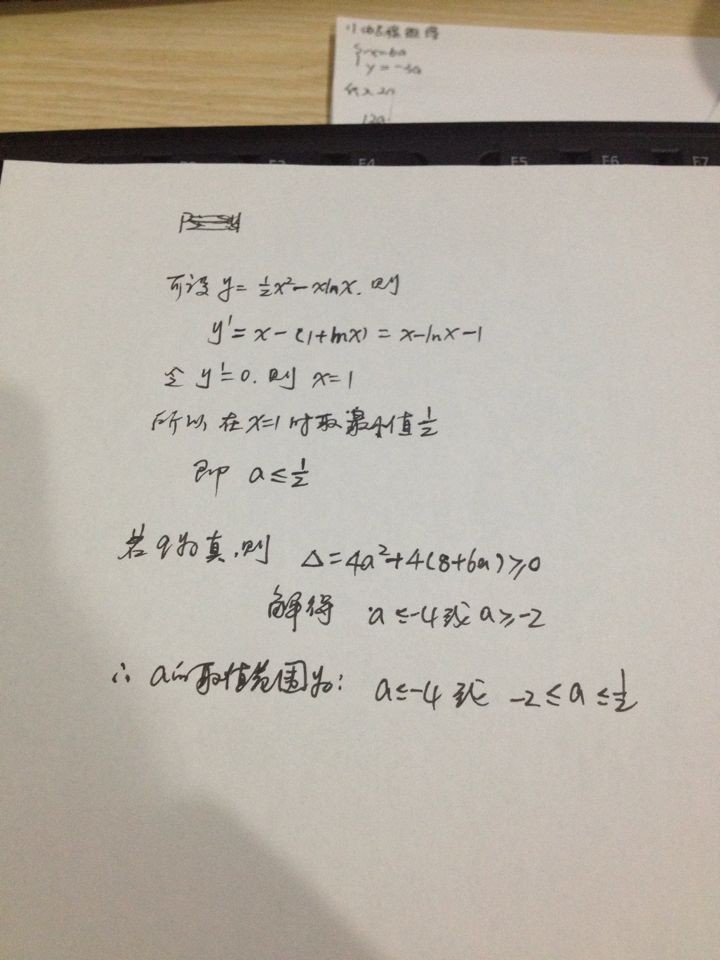 由题意可得
{x=6a
y=-3a
F4
F5
F6
F7
可设 y=½x²-xlnx.则
y'=x-(1+lnx)=x-lnx-1
令 y'=0.则 x=1
所以在x=1时取最小值½
即 a≤½
若q为真,则 Δ=4a²+4(8+6a)≥0
解得 a≤-4或a≥-2
∴ a的取值范围为: a≤-4 或 -2≤a≤½